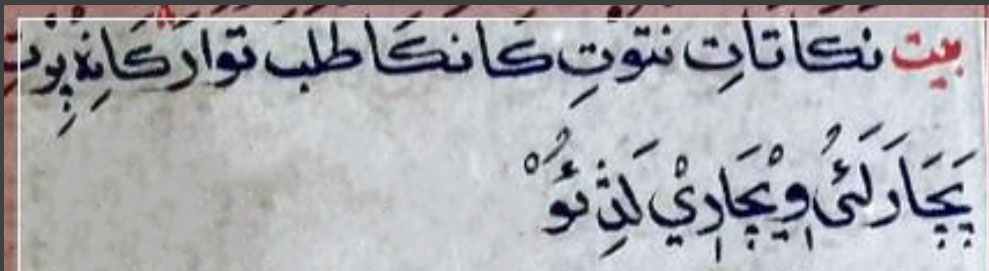 بيت نَكَا تَاتِ نَتَوَتِ كَا نَكَا طَلَبَ تَوَارَ كَانِہ پُوْتِ
پَچَارَ لَئُي وِيْچَارِيْ لَڎِ ئُوْ